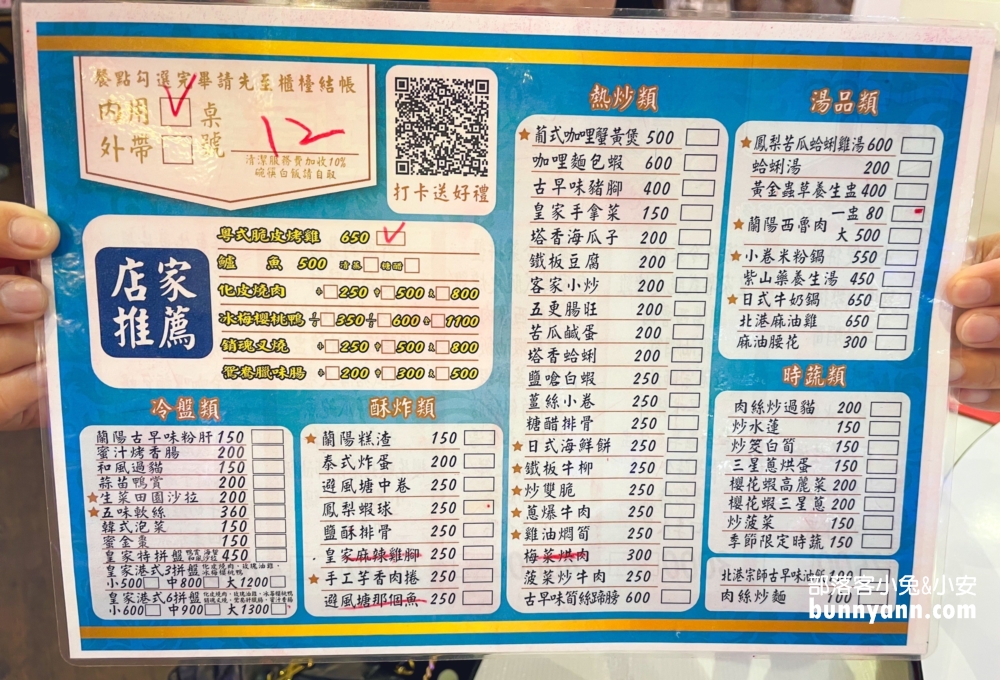 餐點勾選完畢請先至櫃檯結帳
內用 ✓ 桌
外帶 號
12
清潔服務費加收10%
碗筷白飯請自取
打卡送好禮
店家推薦
粵式脆皮烤雞 650 ✓
鱸魚 500 清蒸 糖醋
化皮燒肉 小 250 中 500 大 800
冰梅櫻桃鴨 350 600 1100
銷魂叉燒 小 250 中 500 大 800
鴛鴦臘味腸 小 200 中 300 大 500
冷盤類
蘭陽古早味粉肝 150
蜜汁烤香腸 200
和風過貓 150
蒜苗鴨賞 200
★生菜田園沙拉 200
★五味軟絲 360
韓式泡菜 150
蜜金棗 150
皇家特拼盤 450
皇家港式3拼盤
小500 中800 大1200
皇家港式6拼盤
小600 中900 大1300
酥炸類
★蘭陽糕渣 150
泰式炸蛋 200
避風塘中卷 250
鳳梨蝦球 250
鹽酥排骨 250
皇家麻辣雞腳 250
★手工芋香肉捲 250
避風塘那個魚 250
熱炒類
★葡式咖哩蟹黃煲 500
咖哩麵包蝦 600
古早味豬腳 400
皇家手拿菜 150
塔香海瓜子 200
鐵板豆腐 200
客家小炒 200
五更腸旺 200
苦瓜鹹蛋 200
塔香蛤蜊 200
鹽嗆白蝦 250
薑絲小卷 250
糖醋排骨 250
★日式海鮮餅 250
★鐵板牛柳 250
★炒雙脆 250
★蔥爆牛肉 250
★雞油燜筍 250
梅菜烘肉 300
菠菜炒牛肉 250
古早味筍絲蹄膀 600
湯品類
★鳳梨苦瓜蛤蜊雞湯 600
蛤蜊湯 200
黃金蟲草養生盅 400
★蘭陽西魯肉 一盅 80
大 500
★小卷米粉鍋 550
紫山藥養生湯 450
★日式牛奶鍋 650
北港麻油雞 650
麻油腰花 300
時蔬類
肉絲炒過貓 200
炒水蓮 150
炒筊白筍 150
三星蔥烘蛋 150
櫻花蝦高麗菜 200
櫻花蝦三星蔥 200
炒菠菜 150
季節限定時蔬 150
北港宗師古早味油飯 100
肉絲炒麵 100
部落客小兔&小安
bunnyann.com